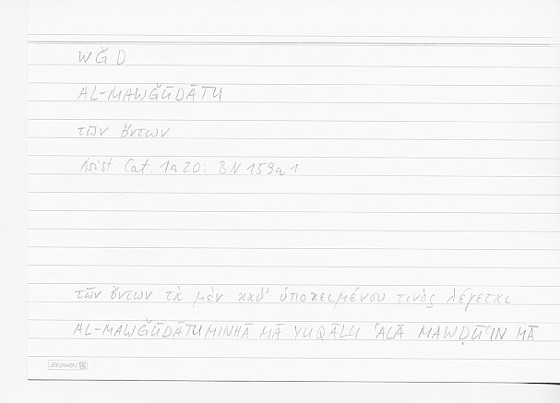 WǦD
AL-MAWǦŪDĀTU
τῶν ὄντων
Arist Cat. 1a20: BN 159a1
τῶν ὄντων τὰ μὲν καθ' ὑποκειμένου τινὸς λέγεται
AL-MAWǦŪDĀTU MINHĀ MĀ YUQĀLU ʿALĀ MAWḌŪʿIN MĀ